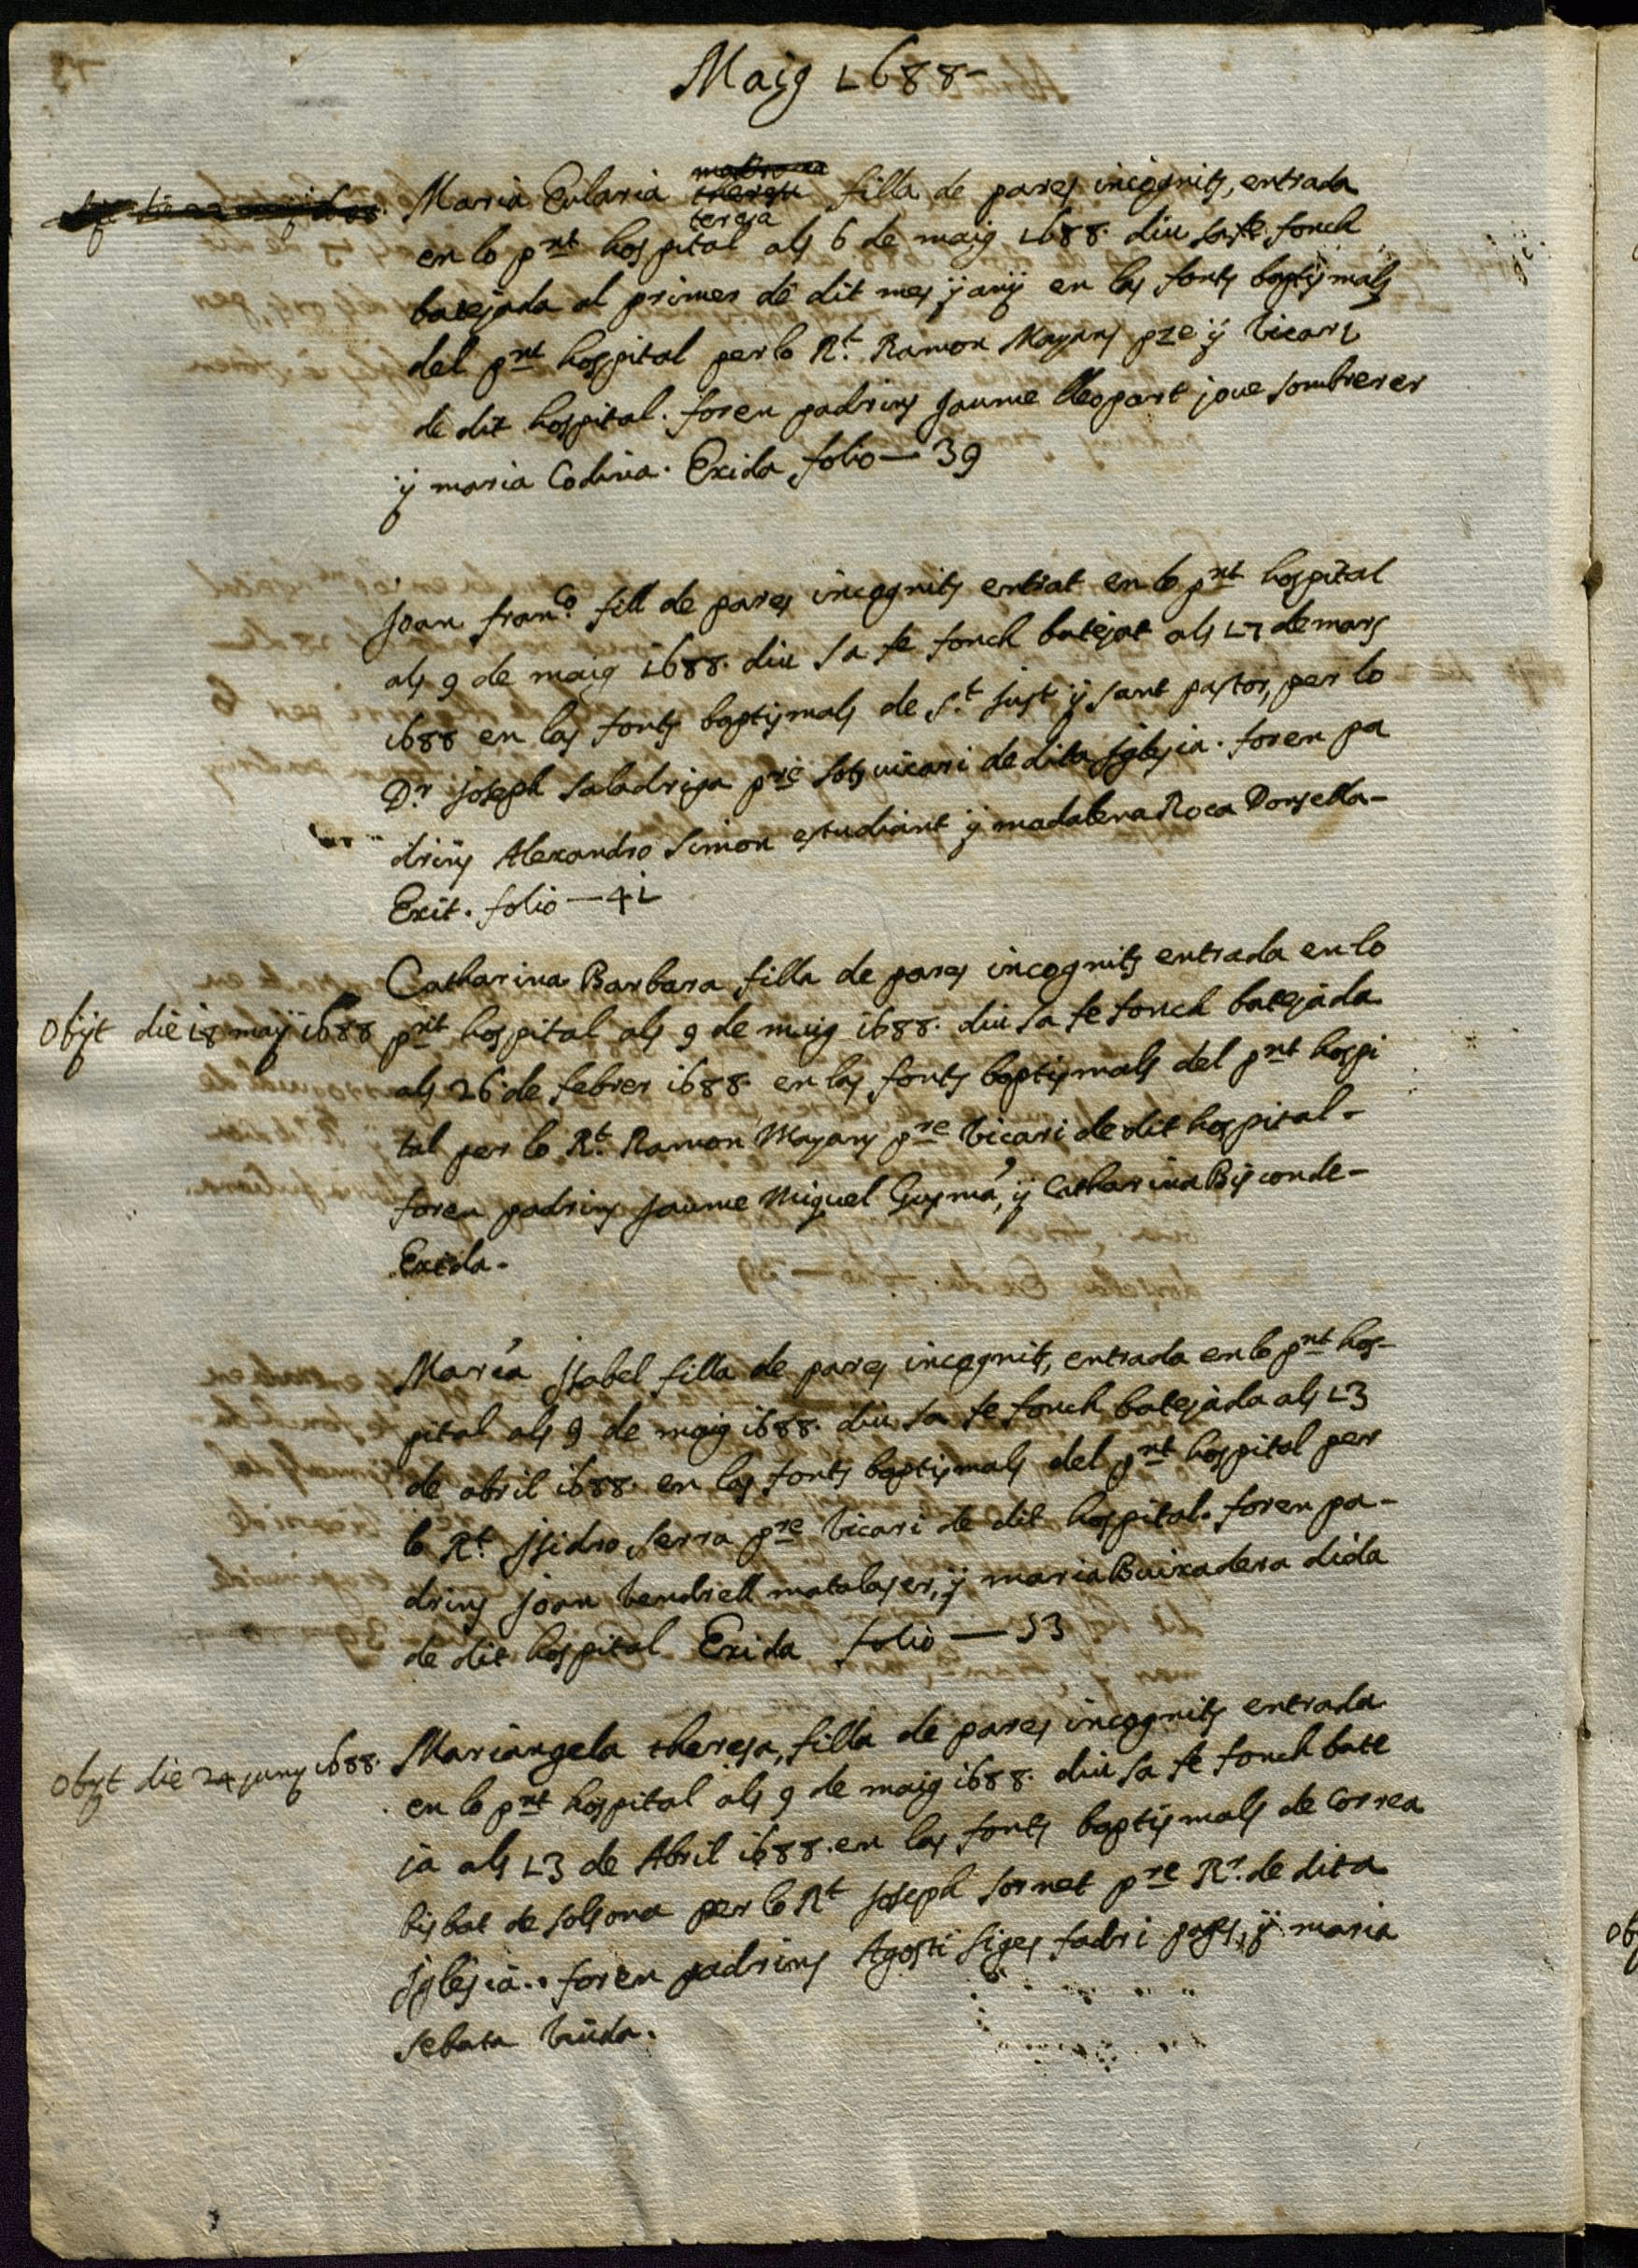 Maig 1688-
Maria Eularia teresa filla de pares incognits, entrada
en lo pnt hospital als 6 de maig 1688. diu sa fe fonch
batejada al primer de dit mes ÿ anÿ en las fonts baptismals
del pnt hospital per lo Rt. Ramon Mayans pre ÿ Vicari
de dit hospital. foren padrins Jaume lleopart jove sombrerer
ÿ maria Codina. Exida folio — 39
Joan franco. fill de pares incognits entrat en lo pnt hospital
als 9 de maig 1688. diu sa fe fonch batejat als 17 de mars
1688 en las fonts baptismals de St. Just ÿ sant pastor, per lo
Dr. Joseph Saladriga pre sotsvicari de dita Iglesia. foren pa
drins Alexandro Simon estudiant ÿ madalena Roca Donsella-
Exit. folio — 41
Catharina Barbara filla de pares incognits entrada en lo
Obÿt die 18 maÿ 1688 pnt hospital als 9 de maig 1688. diu sa fe fonch batejada
als 26 de febrer 1688. en las fonts baptismals del pnt hospi
tal per lo Rt. Ramon Mayans pre Vicari de dit hospital-
foren padrins Jaume Miquel Gusmà, ÿ Catharina Bisconde-
Exida-
María Isabel filla de pares incognits, entrada en lo pnt hos-
pital als 9 de maig 1688. diu sa fe fonch batejada als 13
de abril 1688. en las fonts baptismals del pnt hospital per
lo Rt. Isidro Serra pre Vicari de dit hospital. foren pa-
drins Joan Vendrell matalaser, ÿ maria Buixadera dida
de dit hospital Exida folio — 53
Obÿt die 24 junÿ 1688. Mariangela theresa, filla de pares incognits entrada
en lo pnt hospital als 9 de maig 1688. diu sa fe fonch bate
ja als 13 de Abril 1688. en las fonts baptismals de Correa
bisbat de solsona per lo Rt Joseph Sornet pre Rr. de dita
Iglesia.. foren padrins Agosti Siges fadri pages, ÿ maria
Sebata Viuda.